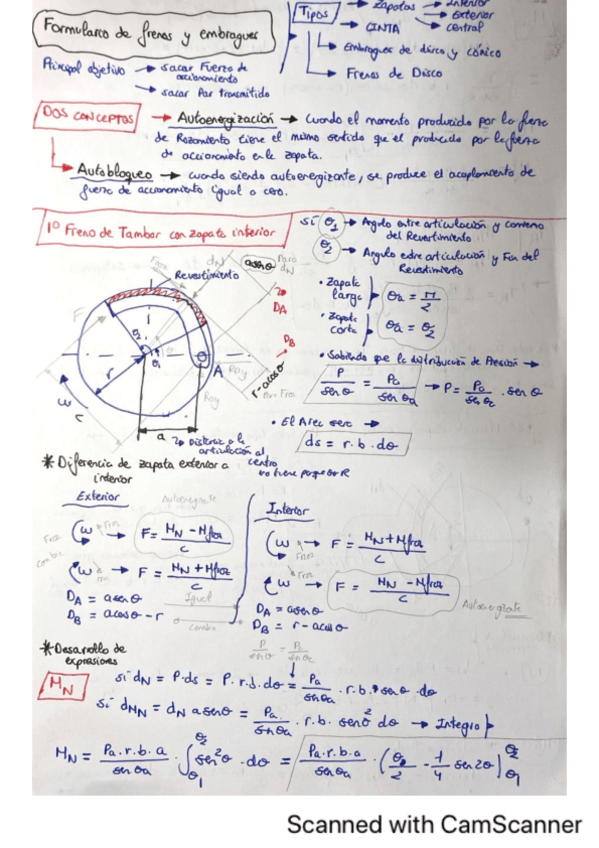 Formulario de frenos y embragues
Tipos → Zapatas → Interior
→ Exterior
→ central
→ CINTA
→ Embragues de disco y cónico
→ Frenos de Disco
Principal objetivo → sacar Fuerza de accionamiento
→ sacar Par transmitido
DOS CONCEPTOS → Autoenergización → cuando el momento producido por la fuerza
de Rozamiento tiene el mismo sentido que el producido por la fuerza
de accionamiento en la zapata.
→ Autobloqueo → cuando siendo autoenergizante, se produce el acoplamiento de
fuerza de accionamiento igual a cero.
1º Freno de Tambor con zapata interior
Si θ1 → Angulo entre articulación y comienzo
del Revestimiento
θ2 → Angulo entre articulación y Fin del
Revestimiento
• Zapata larga θa = π/2
• Zapata corta θa = θ2
• Sabiendo que la distribución de Presión →
P/sen θ = Pa/sen θa → P = Pa/sen θa · sen θ
• El Area sera →
ds = r·b·dθ
Revestimiento
dN
a sen θ
DA
DB
r-acosθ
F
θ2
θ1
r
A
ω
c
a
Distancia a la
articulación al
centro
no tiene porque ser R
* Diferencia de zapata exterior a
interior
Exterior
Autoenergizante
ω → F = (MN - Mfroz)/c
ω → F = (MN + Mfroz)/c
DA = a sen θ
DB = a cos θ - r
Igual
cambia
Interior
ω → F = (MN + Mfroz)/c
ω → F = (MN - Mfroz)/c
Autoenergizante
DA = a sen θ
DB = r - a cos θ
* Desarrollo de
expresiones
P/sen θ = Pa/sen θa
MN
si dN = P·ds = P·r·b·dθ = Pa/sen θa · r·b·sen θ·dθ
si dMN = dN a sen θ = Pa·a/sen θa · r·b·sen²θ dθ → Integro
MN = Pa·r·b·a/sen θa · ∫θ1^θ2 sen²θ·dθ = Pa·r·b·a/sen θa · (θ/2 - 1/4 sen 2θ)θ1^θ2
Scanned with CamScanner